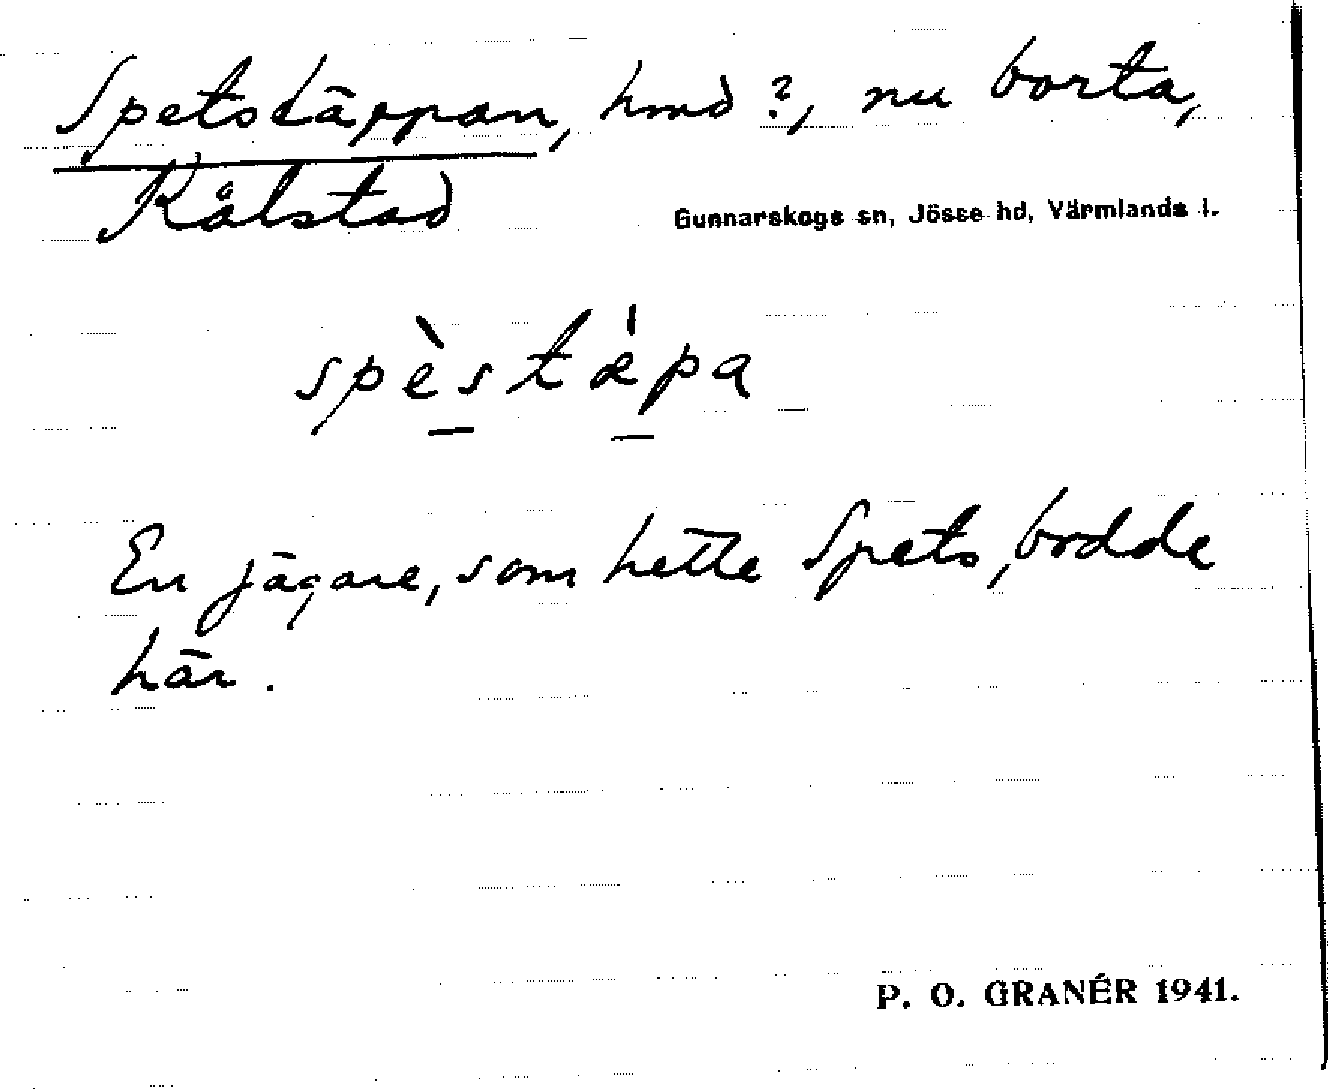 Spetstäppan, hmd ?, nu borta,
Kålstad
Gunnarskogs sn, Jösse hd, Värmlands l.
spὲstæ̀pa
En jägare, som hette Spets, bodde
här.
P. O. GRANÉR 1941.